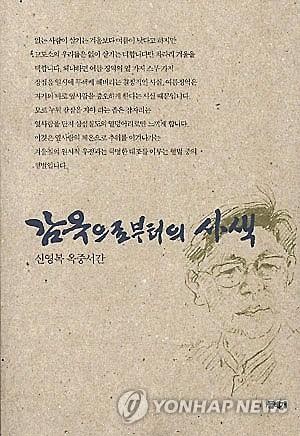 없는 사람이 살기는 겨울보다 여름이 낫다고 하지만
교도소의 우리들은 없이 살기는 더합니다만 차라리 겨울을
택합니다. 왜냐하면 여름 징역의 열 가지 스무 가지
장점을 일시에 무색케 해버리는 결정적인 사실, 여름징역은
자기의 바로 옆사람을 증오하게 한다는 사실 때문입니다.
모로 누워 칼잠을 자야 하는 좁은 잠자리는
옆사람을 단지 삼십칠도의 열덩어리로만 느끼게 합니다.
이것은 옆사람의 체온으로 추위를 이겨나가는
겨울철의 원시적 우정과는 극명한 대조를 이루는 형벌 중의
형벌입니다.
감옥으로부터의 사색
신영복 옥중서간
돌베개
YONHAP NEWS